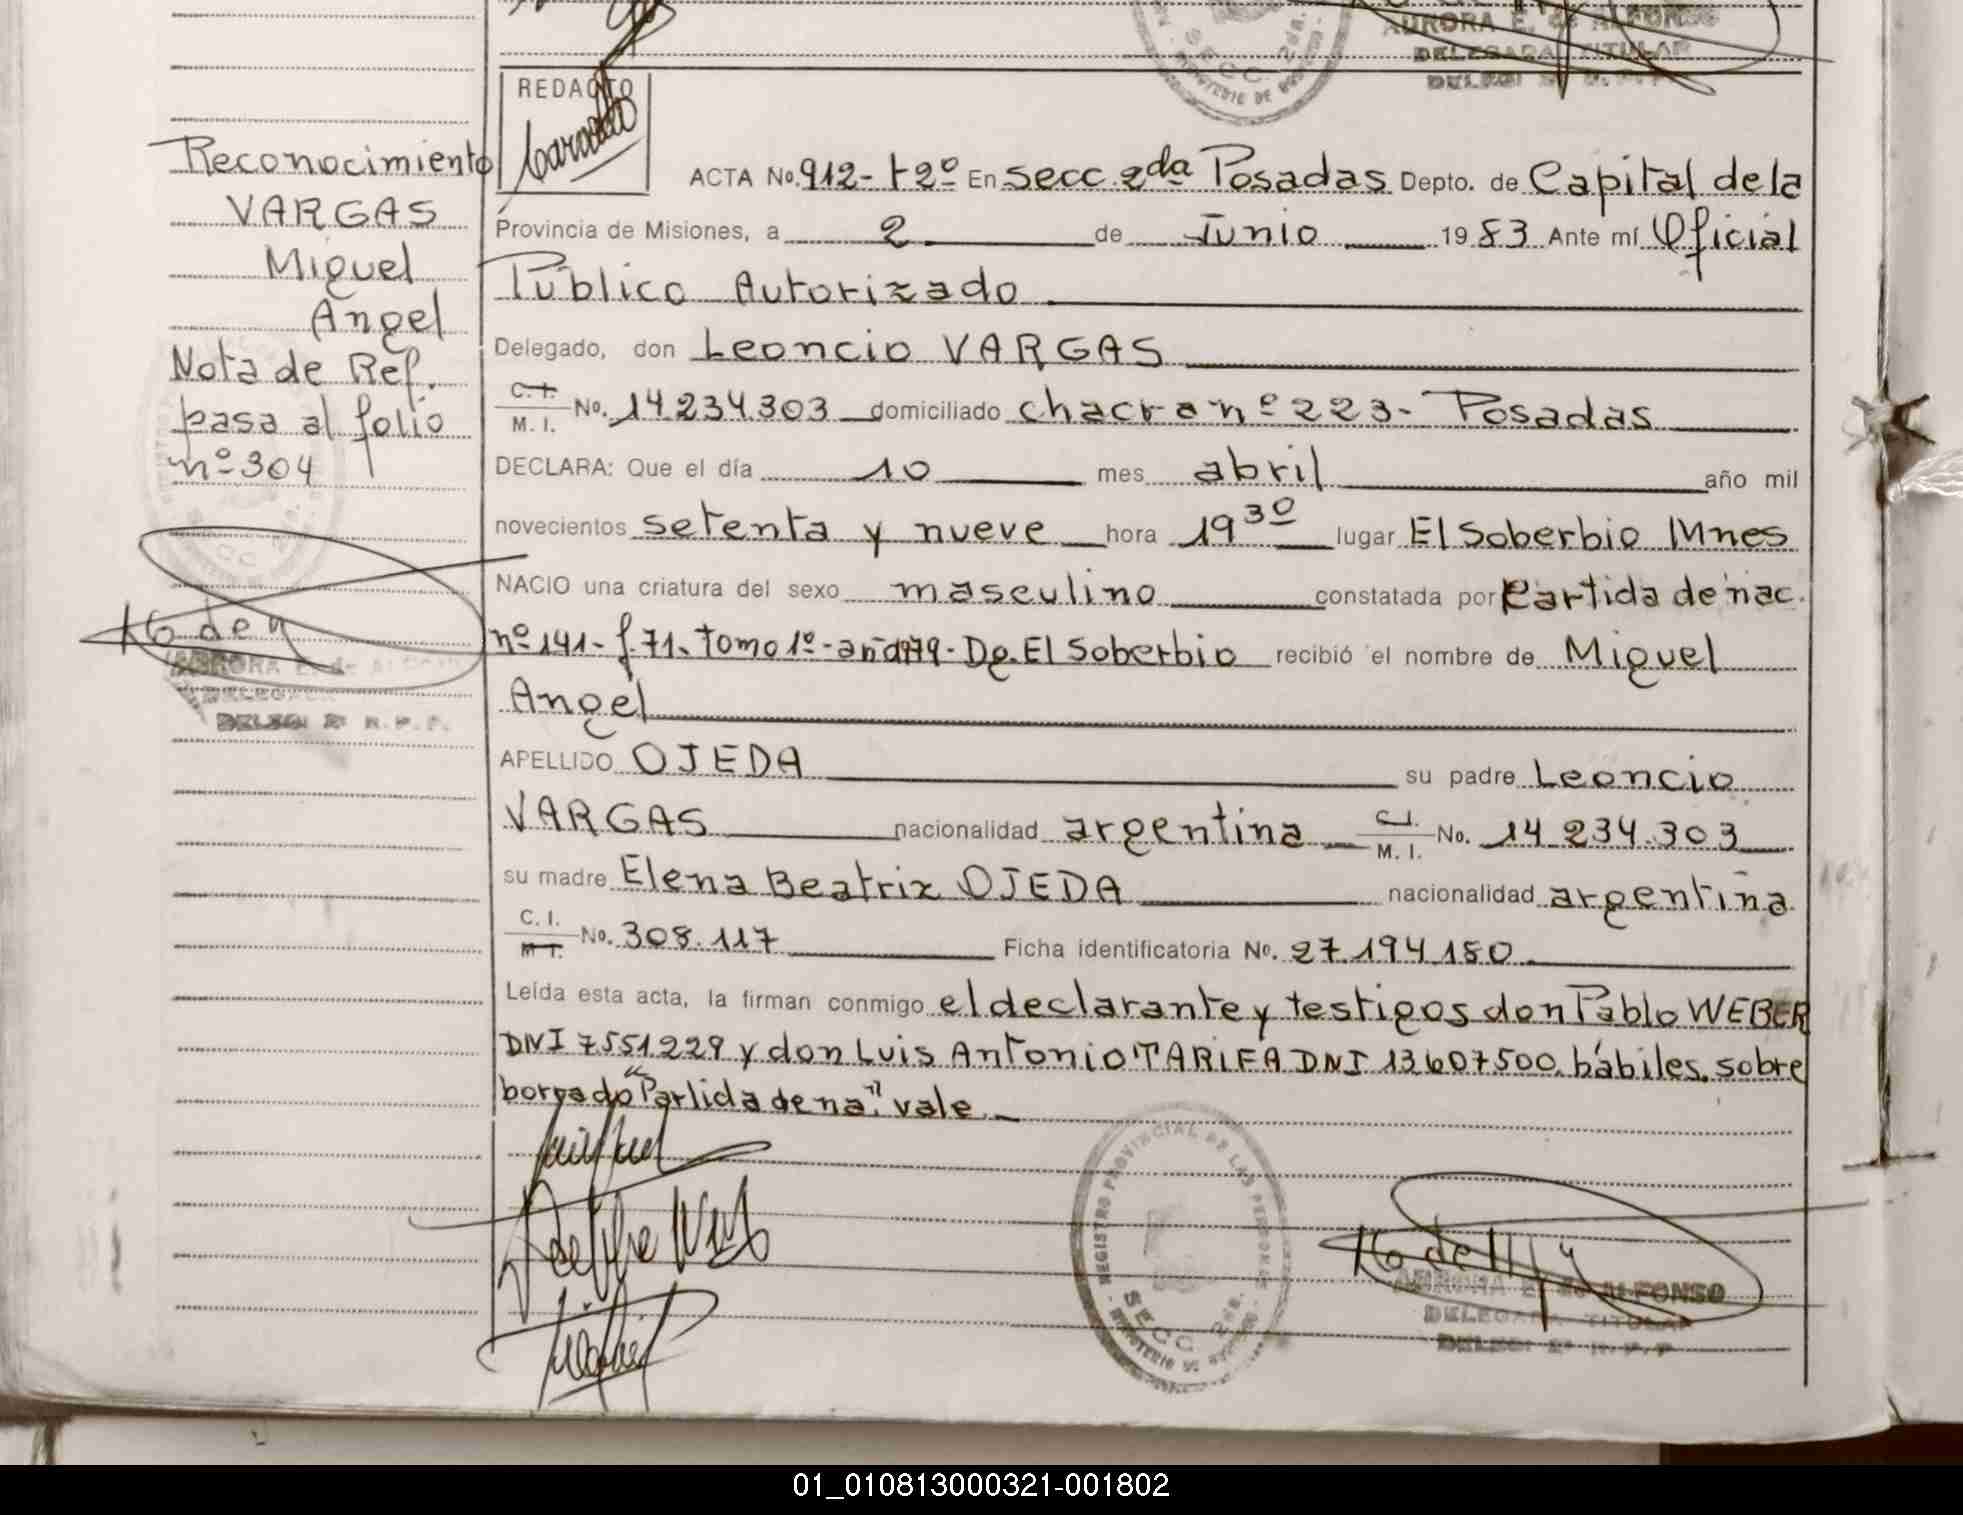 AURORA E. de ALFONSO
DELEGADA TITULAR
SECC. 2da.
REDACTO
Reconocimiento
VARGAS
Miguel
Angel
Nota de Ref.
pasa al folio
nº 304
ACTA No. 912- t 2º En Secc. 2da Posadas Depto. de Capital de la
Provincia de Misiones, a 2 de Junio 1983 Ante mí Oficial
Público Autorizado
Delegado, don Leoncio VARGAS
C. I. / M. I. No. 14.234.303 domiciliado chacra nº 223- Posadas
DECLARA: Que el día 10 mes abril año mil
novecientos setenta y nueve hora 19 30 lugar El Soberbio Mnes
NACIO una criatura del sexo masculino constatada por Partida de nac.
nº 141- f. 71. tomo 1º - año 1979 - De. El Soberbio recibió el nombre de Miguel
Angel
APELLIDO OJEDA su padre Leoncio
VARGAS nacionalidad argentina C. I. / M. I. No. 14.234.303
su madre Elena Beatriz OJEDA nacionalidad argentina
C. I. / M. I. No. 308.117 Ficha identificatoria No. 27.194.180
Leída esta acta, la firman conmigo el declarante y testigos don Pablo WEBER
DNI 7551229 y don Luis Antonio TARIFA DNI 13607500. hábiles. sobre
borrado "Partida de na." vale
AURORA E. de ALFONSO
REGISTRO PROVINCIAL DE LAS PERSONAS
SECC. 2da.
MINISTERIO DE GOBIERNO
AURORA E. de ALFONSO
DELEGADA TITULAR
01_010813000321-001802